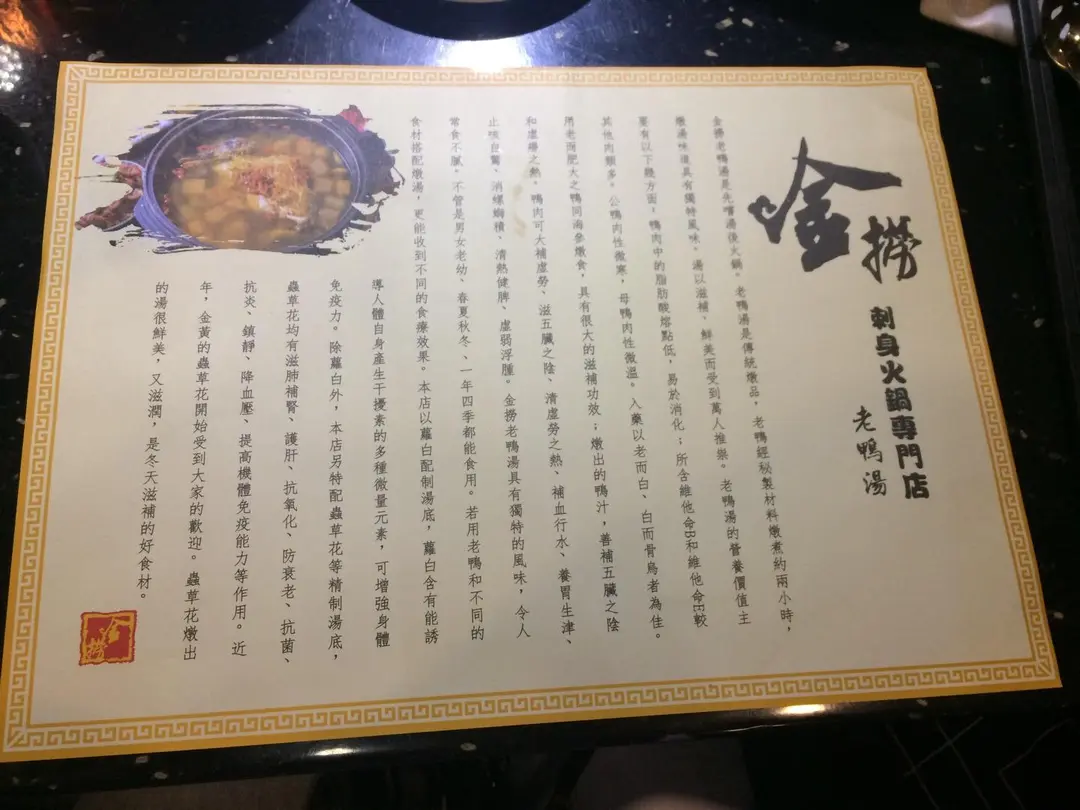 金撈
刺身火鍋專門店
老鴨湯
金撈老鴨湯是先嚐湯後火鍋。老鴨湯是傳統燉品，老鴨經秘製材料燉煮約兩小時，
燉湯味道具有獨特風味、湯以滋補、鮮美而受到萬人推崇。老鴨湯的營養價值主
要有以下幾方面，鴨肉中的脂肪酸熔點低，易於消化；所含維他命B和維他命E較
其他肉類多。公鴨肉性微寒，母鴨肉性微溫。入藥以老而白、白而骨烏者為佳。
用老而肥大之鴨同海參燉食，具有很大的滋補功效；燉出的鴨汁，善補五臟之陰
和虛癆之熱。鴨肉可大補虛勞、滋五臟之陰、清虛勞之熱、補血行水、養胃生津、
止咳自驚、消螺螄積、清熱健脾、虛弱浮腫。金撈老鴨湯具有獨特的風味，令人
常食不膩。不管是男女老幼、春夏秋冬、一年四季都能食用。若用老鴨和不同的
食材搭配燉湯，更能收到不同的食療效果。本店以蘿白配制湯底，蘿白含有能誘
導人體自身產生干擾素的多種微量元素，可增強身體
免疫力。除蘿白外，本店另特配蟲草花等精制湯底，
蟲草花均有滋肺補腎、護肝、抗氧化、防衰老、抗菌、
抗炎、鎮靜、降血壓、提高機體免疫能力等作用。近
年，金黃的蟲草花開始受到大家的歡迎。蟲草花燉出
的湯很鮮美，又滋潤，是冬天滋補的好食材。
金撈